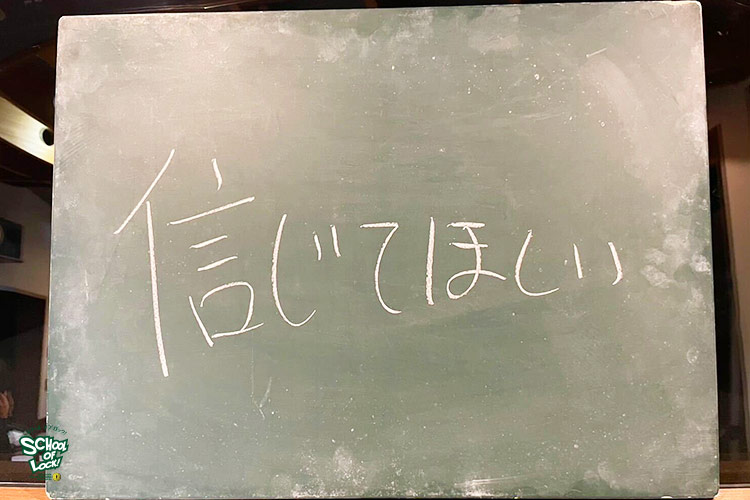 信じてほしい
SCHOOL
OF
LOCK!